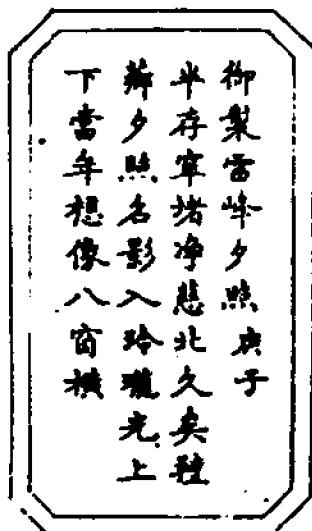 御製雷峰夕照 庚子
半存窣堵净慈北久矣
辭夕照名影入玲瓏光上
下當年想像八窗横